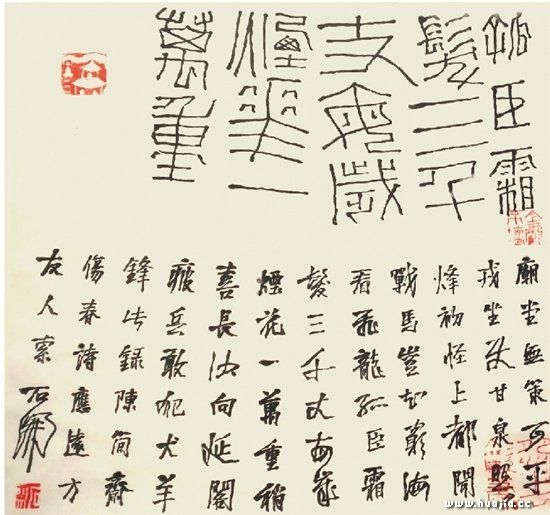 孤臣霜
髮三千
丈每歲
煙華一
萬重
廟堂無策可平
戎坐使甘泉照夕
烽初怪上都聞
戰馬豈知窮海
看飛龍孤臣霜
髮三千丈每歲
煙花一萬重稍
喜長沙向延閣
疲兵敢犯犬羊
鋒此錄陳簡齋
傷春詩應遠方
友人索 石開
www.huajia.cc